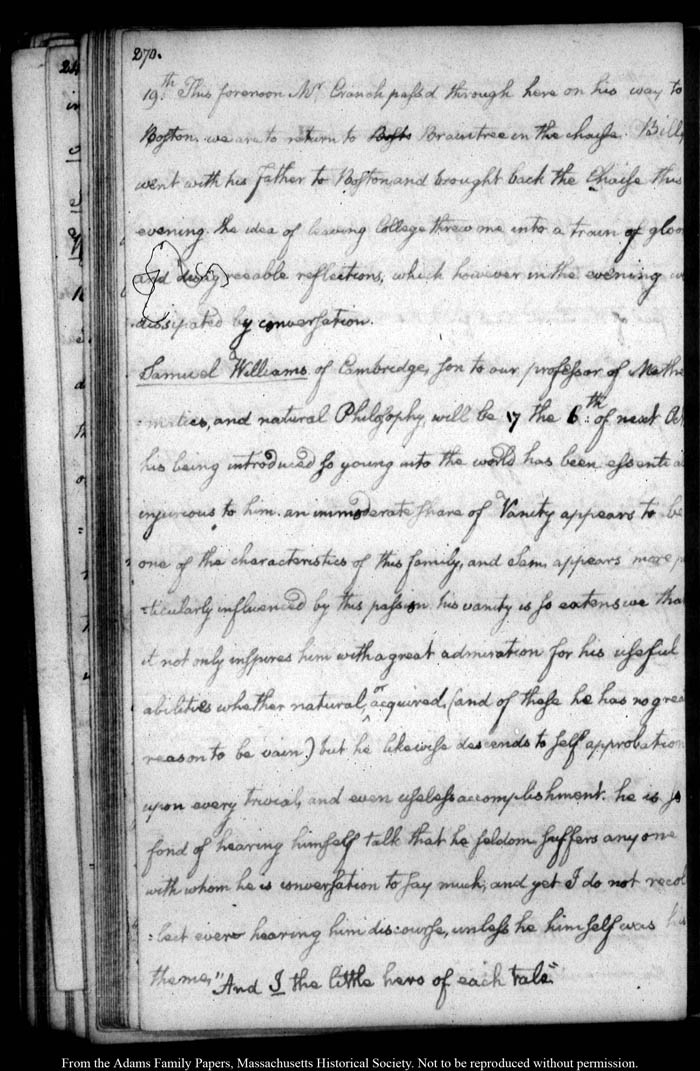 270.
19.th This forenoon Mr. Cranch pass'd through here on his way to
Boston. we are to return to Bost Braintree in the chaise. Bill
went with his father to Boston and brought back the Chaise this
evening. the idea of leaving College threw me into a train of gloo
and disagreeable reflections, which however in the evening w
dissipated by conversation.
Samuel Williams of Cambridge, son to our professor of Mathe
:matics, and natural Philosophy, will be 17 the 6:th of next Oct
his being introduced so young into the world has been essentia
injurious to him. an immoderate share of Vanity appears to be
one of the characteristics of this family, and Sam, appears more p
:ticularly influenced by this passion. his vanity is so extensive tha
it not only inspires him with a great admiration for his useful
abilities whether natural, or acquired, (and of these he has no grea
reason to be vain.) but he likewise descends to self approbation
upon every trivial, and even useless accomplishment. he is so
fond of hearing himself talk that he seldom suffers any one
with whom he is conversation to say much; and yet I do not recol
:lect ever hearing him discourse, unless he himself was his
theme, "And I the little hero of each tale."
From the Adams Family Papers, Massachusetts Historical Society. Not to be reproduced without permission.